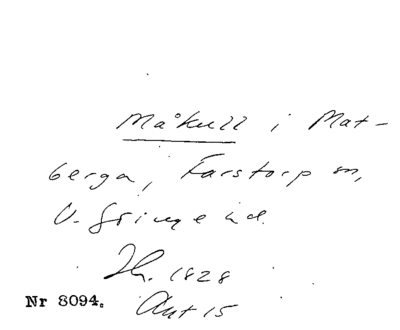 Måkull i Mat-
berga, Farstorp sn,
V. Göinge hd.
Jh. 1828
Nr 8094. Ant 15